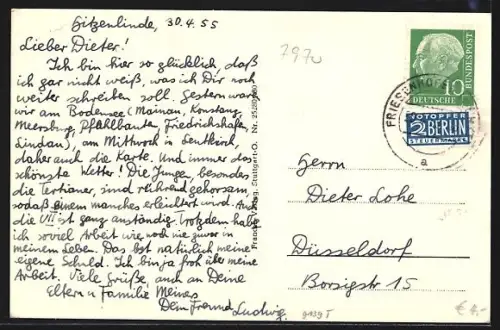 Sitzenlinde, 30.4.55
Lieber Dieter!
Ich bin hier so glücklich, daß
ich gar nicht weiß, was ich Dir noch
weiter schreiben soll. Gestern waren
wir am Bodensee (Mainau, Konstanz,
Meersburg, Pfahlbauten, Friedrichshafen,
Lindau), am Mittwoch in Leutkirch,
daher auch die Karte. Und immer das
schönste Wetter! Die Jungen, besonders
die Tertianer, sind rührend gehorsam,
sodaß einem manches erleichtert wird. Auch
die VII ist ganz anständig. Trotzdem habe
ich soviel Arbeit wie noch nie zuvor in
meinem Leben. Das ist natürlich meine
eigene Schuld. Ich bin ja froh über meine
Arbeit. Viele Grüße, auch an Deine
Eltern u Familie
Dein Freund Ludwig
Stuttgart-O.
797u
10
DEUTSCHE
BUNDESPOST
NOTOPFER
2 BERLIN
STEUERMARKE
a
Herrn
Dieter Lohe
Düsseldorf
Borsigstr 15